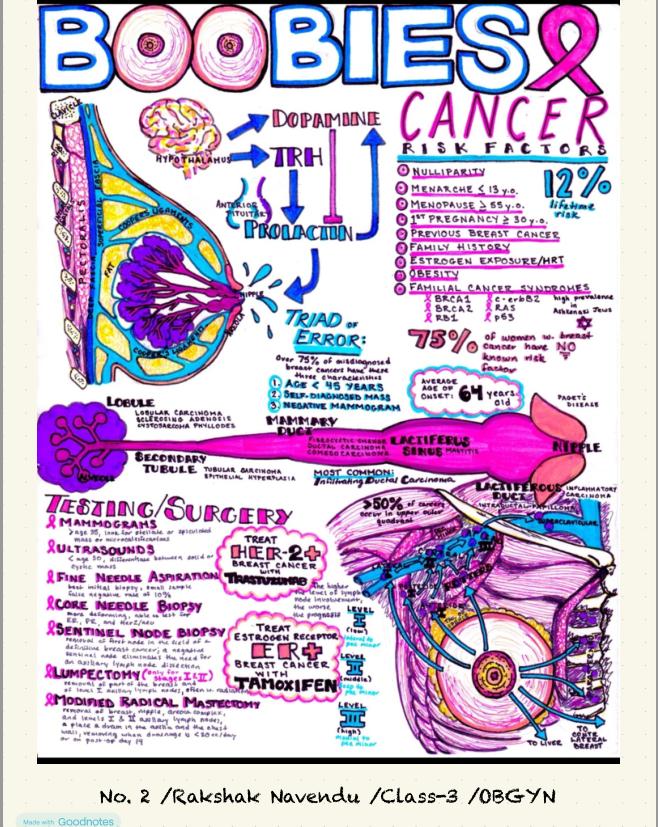 BOOBIES
CANCER
RISK FACTORS
NULLIPARITY
MENARCHE < 13 y.o.
MENOPAUSE ≥ 55 y.o.
1st PREGNANCY ≥ 30 y.o.
PREVIOUS BREAST CANCER
FAMILY HISTORY
ESTROGEN EXPOSURE/HRT
OBESITY
FAMILIAL CANCER SYNDROMES
BRCA1 c-erbB2
BRCA2 RAS
RB1 p53
high prevalence
in
Ashkenazi Jews
12%
lifetime
risk
75% of women w. breast
cancer have NO
known risk
factor
AVERAGE
AGE OF
ONSET: 64 years
old
CLAVICLE
PECTORALIS
DEEP FASCIA
SUPERFICIAL FASCIA
COOPER'S LIGAMENTS
FAT
COOPER'S LIGAMENTS
NIPPLE
AREOLA
HYPOTHALAMUS
DOPAMINE
TRH
ANTERIOR
PITUITARY
PROLACTIN
TRIAD OF
ERROR:
Over 75% of misdiagnosed
breast cancers have these
three characteristics
1. AGE < 45 YEARS
2. SELF-DIAGNOSED MASS
3. NEGATIVE MAMMOGRAM
LOBULE
LOBULAR CARCINOMA
SCLEROSING ADENOSIS
CYSTOSARCOMA PHYLLODES
ALVEOLI
SECONDARY
TUBULE
TUBULAR CARCINOMA
EPITHELIAL HYPERPLASIA
MAMMARY
DUCT
FIBROCYSTIC CHANGE
DUCTAL CARCINOMA
COMEDOCARCINOMA
LACTIFERUS
SINUS MASTITIS
MOST COMMON:
Infiltrating Ductal Carcinoma
PAGET'S
DISEASE
NIPPLE
LACTIFEROUS
DUCT
INTRADUCTAL PAPILLOMA
INFLAMMATORY
CARCINOMA
TESTING/SURGERY
MAMMOGRAMS
>age 35, look for stellate or spiculated
mass or microcalcifications
ULTRASOUNDS
<age 30, differentiate between solid or
cystic mass
FINE NEEDLE ASPIRATION
best initial biopsy, small sample
false negative rate of 10%
CORE NEEDLE BIOPSY
more deforming, able to test for
ER, PR, and Her2/neu
SENTINEL NODE BIOPSY
removal of first node in the field of a
definitive breast cancer, a negative
sentinel node eliminates the need for
an axillary lymph node dissection
LUMPECTOMY (only for
stages I & II)
removal of part of the breast and
of level I axillary lymph nodes, often in radiation
MODIFIED RADICAL MASTECTOMY
removal of breast, nipple, areola complex,
and levels I & II axillary lymph nodes,
a place a drain in the axilla and the chest
wall, removing when drainage is < 30 cc/day
or on post-op day 14
TREAT
HER-2+
BREAST CANCER
WITH
TRASTUZUMAB
TREAT
ESTROGEN RECEPTOR
ER+
BREAST CANCER
WITH
TAMOXIFEN
The higher
the level of lymph
node involvement,
the worse
the prognosis
LEVEL
I
(low)
lateral to
pec minor
LEVEL
II
(middle)
deep to
pec minor
LEVEL
III
(high)
medial to
pec minor
>50% of cancers
occur in upper outer
quadrant
SUPRACLAVICULAR
TO LIVER
TO
CONTRALATERAL
BREAST
No. 2 /Rakshak Navendu /Class-3 /OBGYN
Made with Goodnotes